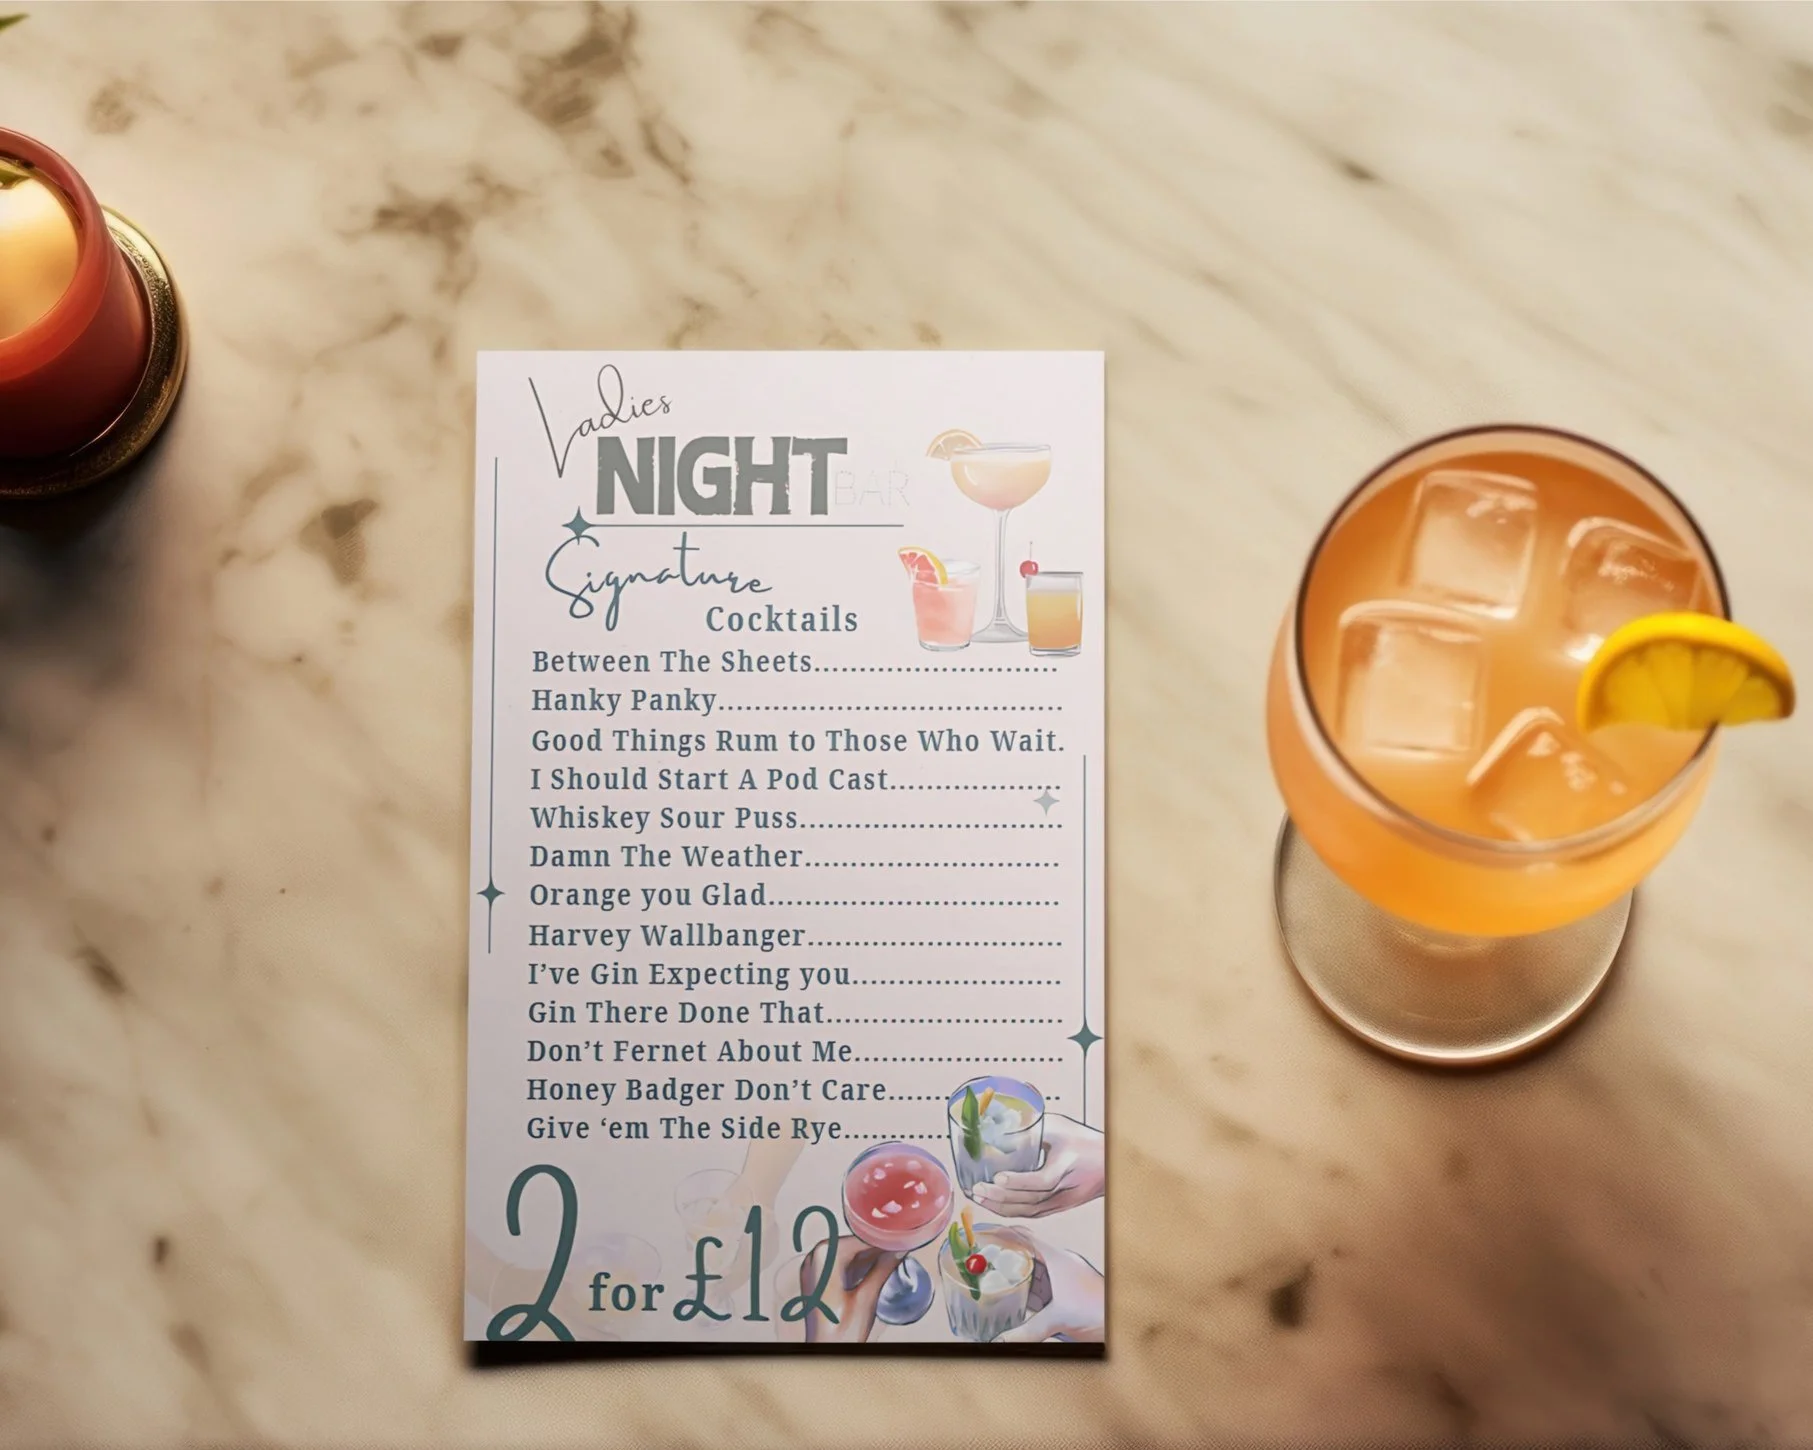 Ladies
NIGHT BAR
Signature
Cocktails
Between The Sheets...............................
Hanky Panky............................................
Good Things Rum to Those Who Wait.
I Should Start A Pod Cast......................
Whiskey Sour Puss..................................
Damn The Weather.................................
Orange you Glad......................................
Harvey Wallbanger.................................
I’ve Gin Expecting you...........................
Gin There Done That...............................
Don’t Fernet About Me...........................
Honey Badger Don’t Care........ ..
Give ‘em The Side Rye..............
2 for £12